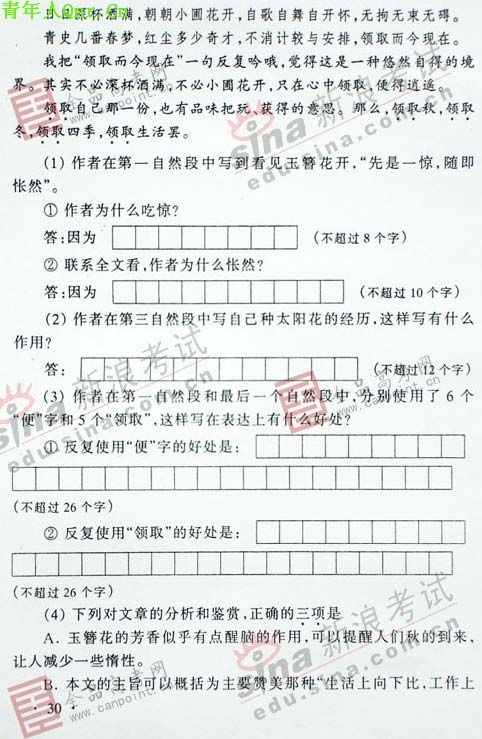 青年人
日日深杯酒满,朝朝小圃花开,自歌自舞自开怀,无拘无束无碍。
青史几番春梦,红尘多少奇才,不消计较与安排,领取而今现在。
我把“领取而今现在”一句反复吟哦,觉得这是一种悠然自得的境
界。其实不必深杯酒满,不必小圃花开,只在心中领取,便得逍遥。
领取自己那一份,也有品味把玩、获得的意思。那么,领取秋,领取
冬,领取四季,领取生活罢。
(1) 作者在第一自然段中写到看见玉簪花开,“先是一惊,随即
怅然”。
① 作者为什么吃惊?
答:因为 (不超过 8 个字)
② 联系全文看,作者为什么怅然?
答:因为 (不超过 10 个字)
(2) 作者在第三自然段中写自己种太阳花的经历,这样写有什么
作用?
答: (不超过 12 个字)
(3) 作者在第一自然段和最后一个自然段中,分别使用了 6 个
“便”字和 5 个“领取”,这样写在表达上有什么好处?
① 反复使用“便”字的好处是:
(不超过 26 个字)
② 反复使用“领取”的好处是:
(不超过 26 个字)
(4) 下列对文章的分析和鉴赏,正确的三项是
A. 玉簪花的芳香似乎有点醒脑的作用,可以提醒人们秋的到来,
让人减少一些惰性。
B. 本文的主旨可以概括为主要赞美那种“生活上向下比,工作上
· 30 ·
sina 新浪考试
edu.sina.com.cn
金品高考网
www.canpoint.cn